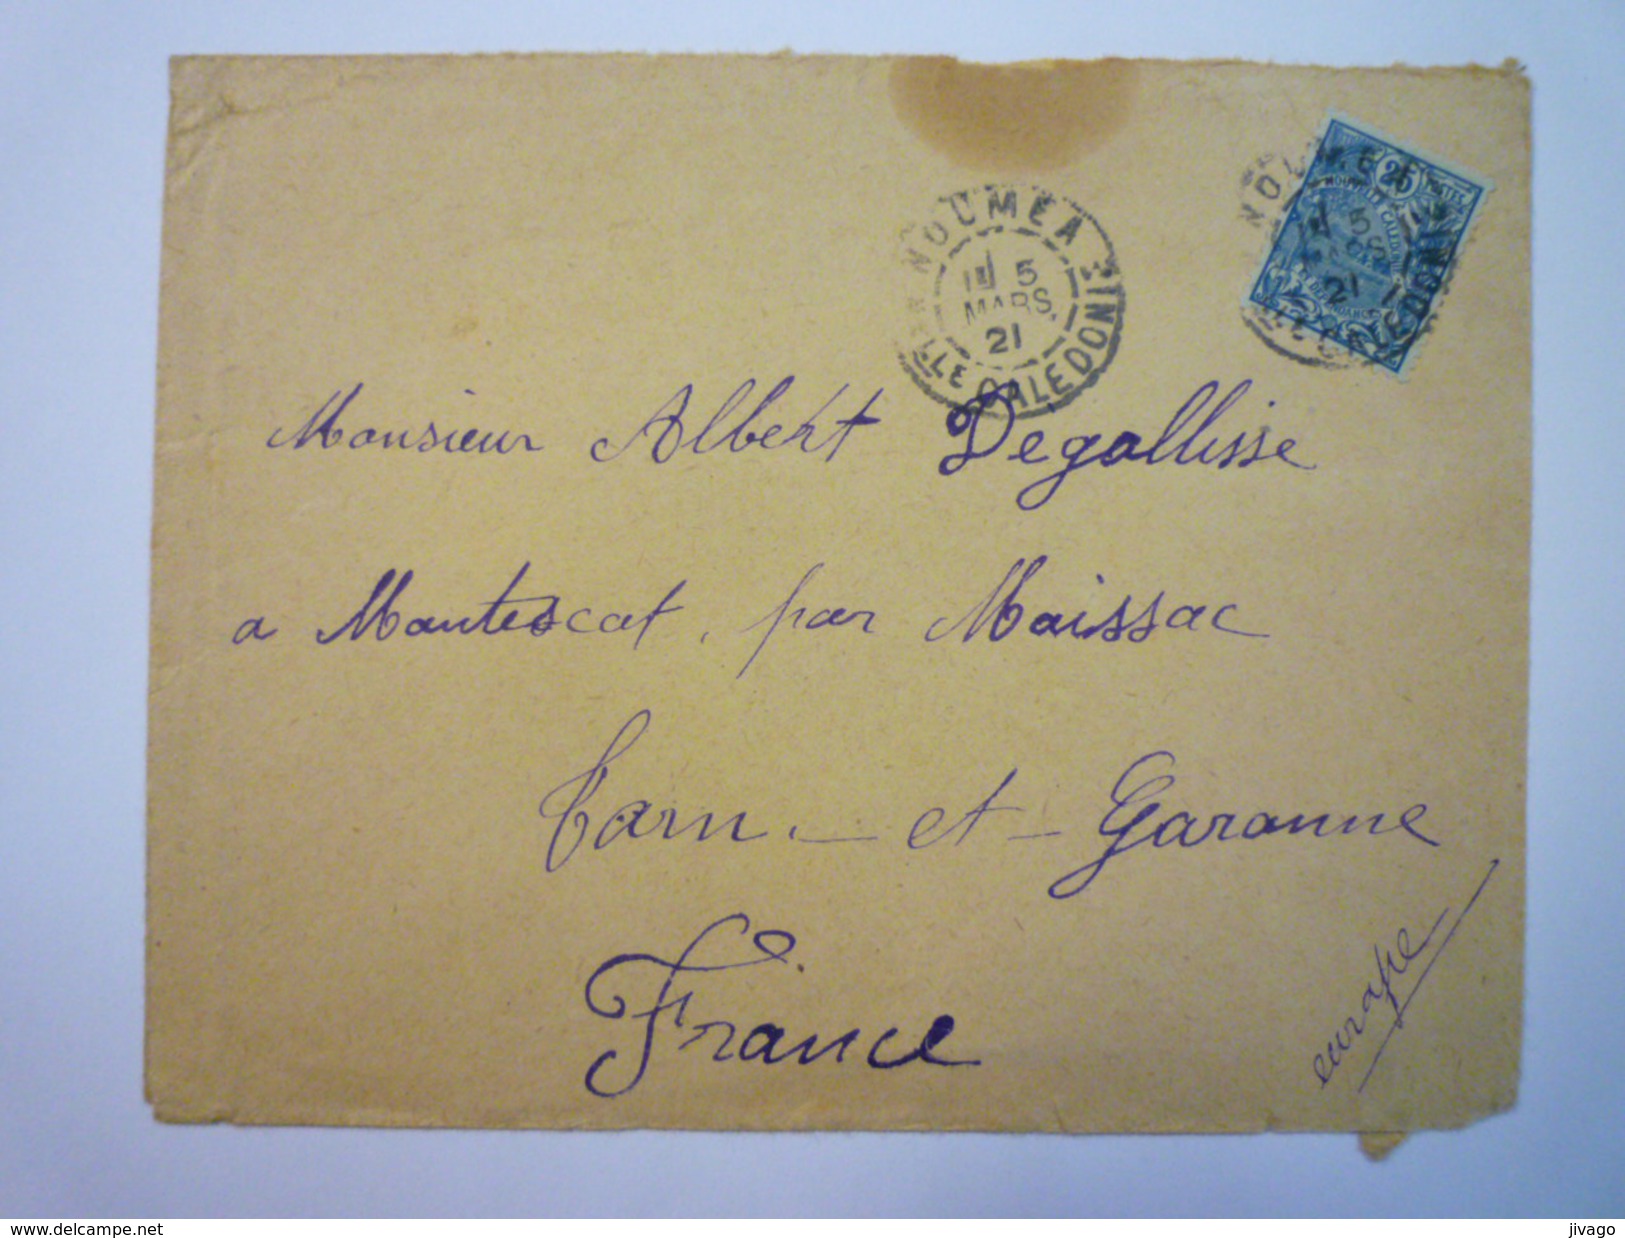 NOUMEA
5
MARS
21
Nlle CALEDONIE
25
POSTES
5
21
Monsieur Albert Degallisse
a Montescat, par Moissac
Tarn - et - Garonne
France
europe
www.delcampe.net
jivago